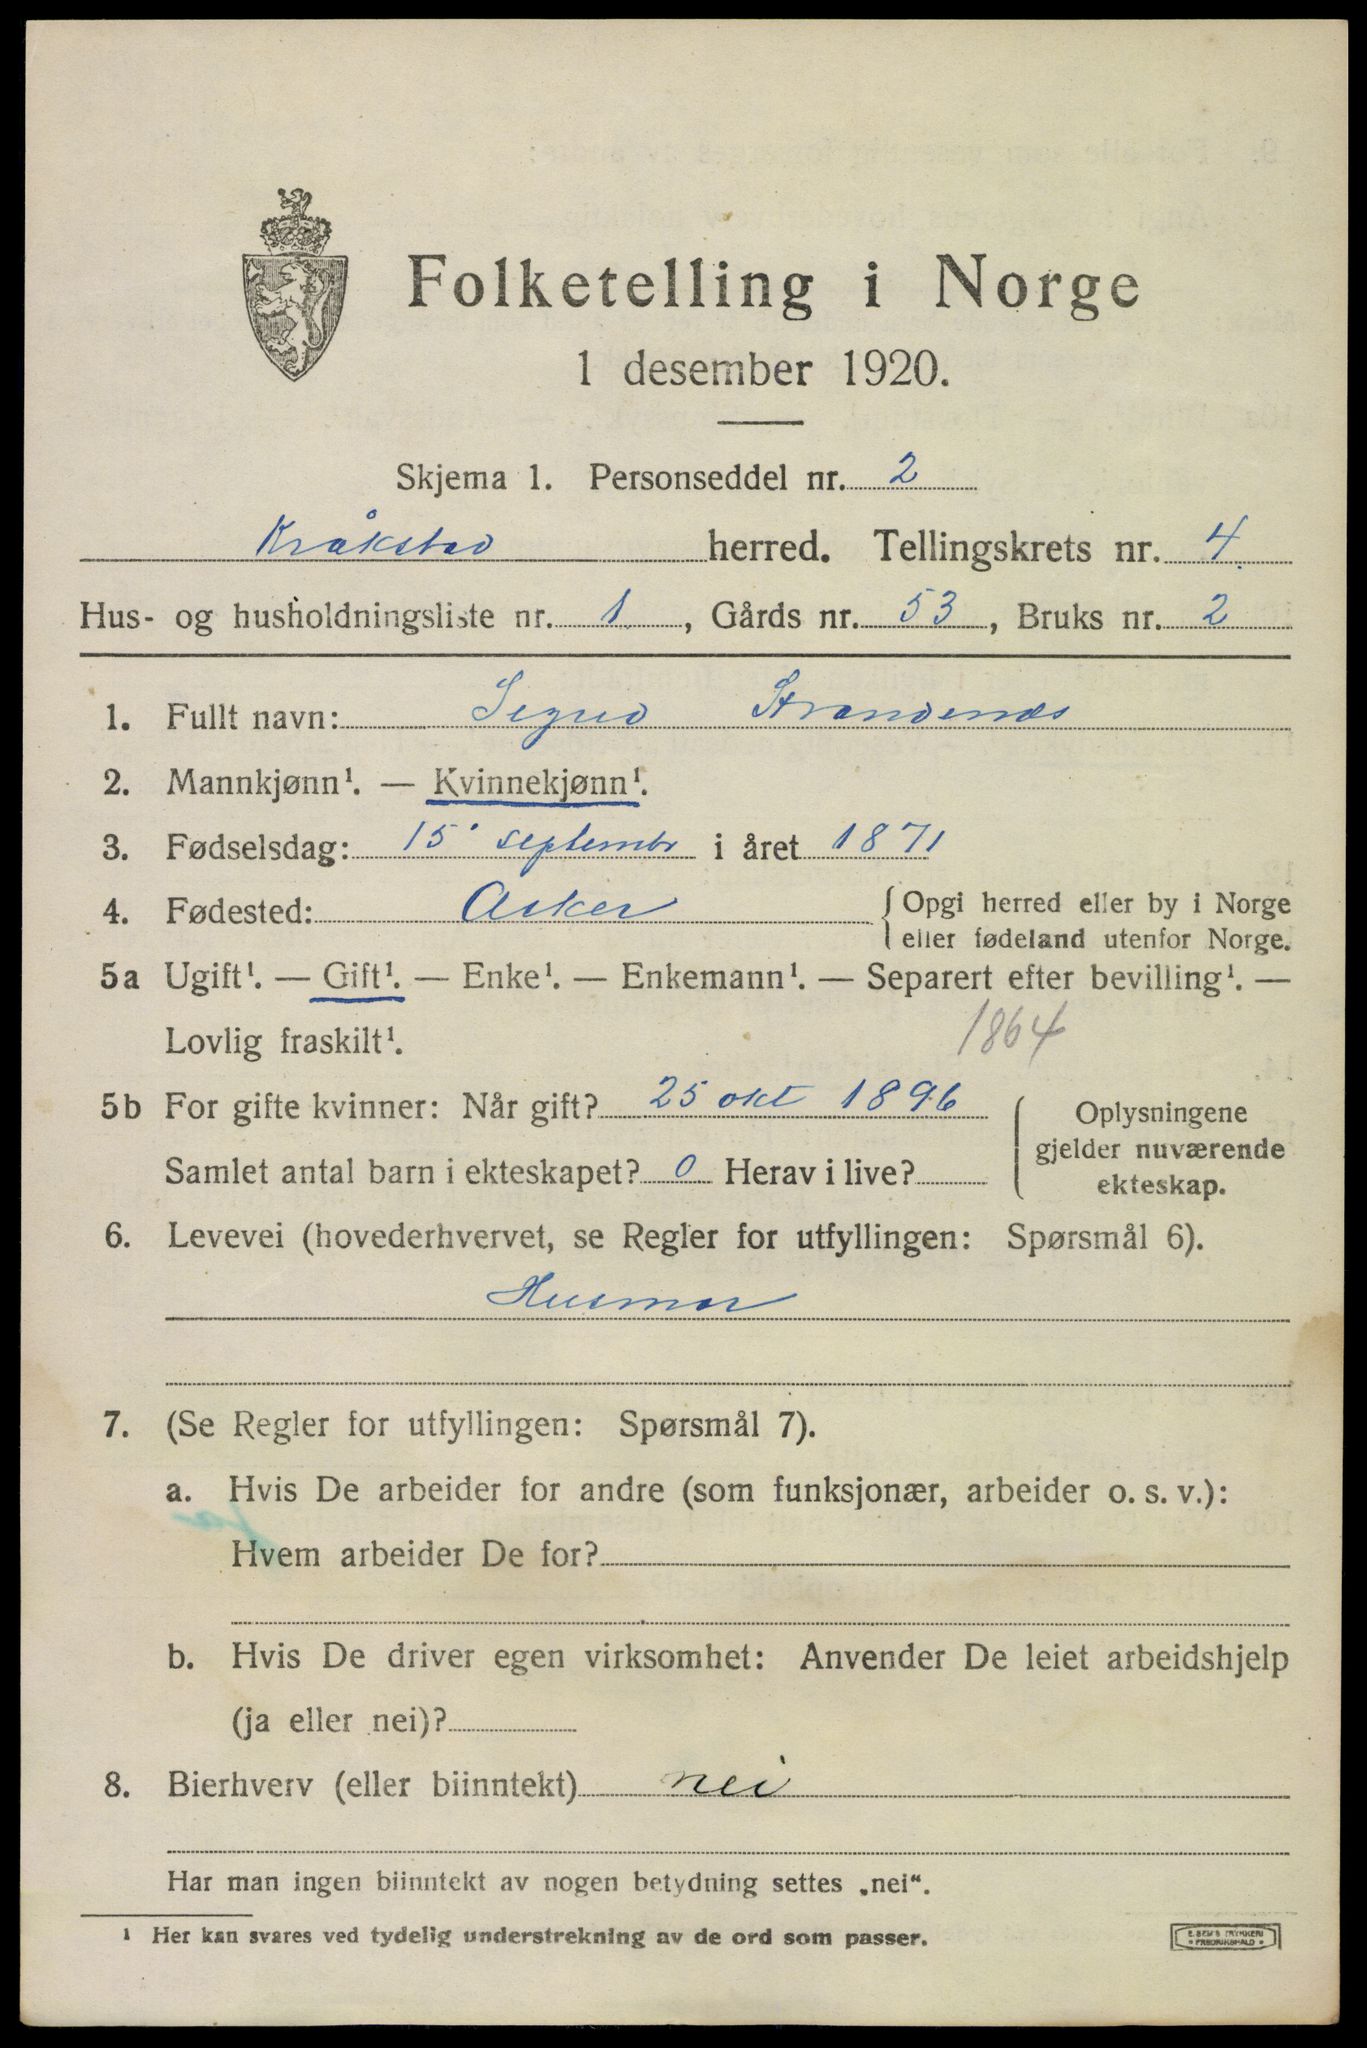 Folketelling i Norge
1 desember 1920.
Skjema 1. Personseddel nr. 2
Kråkstad herred. Tellingskrets nr. 4.
Hus- og husholdningsliste nr. 1. , Gårds nr. 53 , Bruks nr. 2
1. Fullt navn: Strandenæs
2. Mannkjønn¹. — Kvinnekjønn¹.
3. Fødselsdag: 15 septembr i året 1871
4. Fødested: Asker { Opgi herred eller by i Norge
eller fødeland utenfor Norge.
5a Ugift¹. — Gift¹. — Enke¹. — Enkemann¹. — Separert efter bevilling¹. —
Lovlig fraskilt¹. 1864
5b For gifte kvinner: Når gift? 25 okt 1896
Samlet antal barn i ekteskapet? 0 Herav i live?
{ Oplysningene
gjelder nuværende
ekteskap.
6. Levevei (hovederhvervet, se Regler for utfyllingen: Spørsmål 6).
Husmor
7. (Se Regler for utfyllingen: Spørsmål 7).
a. Hvis De arbeider for andre (som funksjonær, arbeider o. s. v.):
Hvem arbeider De for?
b. Hvis De driver egen virksomhet: Anvender De leiet arbeidshjelp
(ja eller nei)?
8. Bierhverv (eller biinntekt) nei
Har man ingen biinntekt av nogen betydning settes „nei“.
¹ Her kan svares ved tydelig understrekning av de ord som passer.
E. SEM'S TRYKKERI
* FREDRIKSHALD *